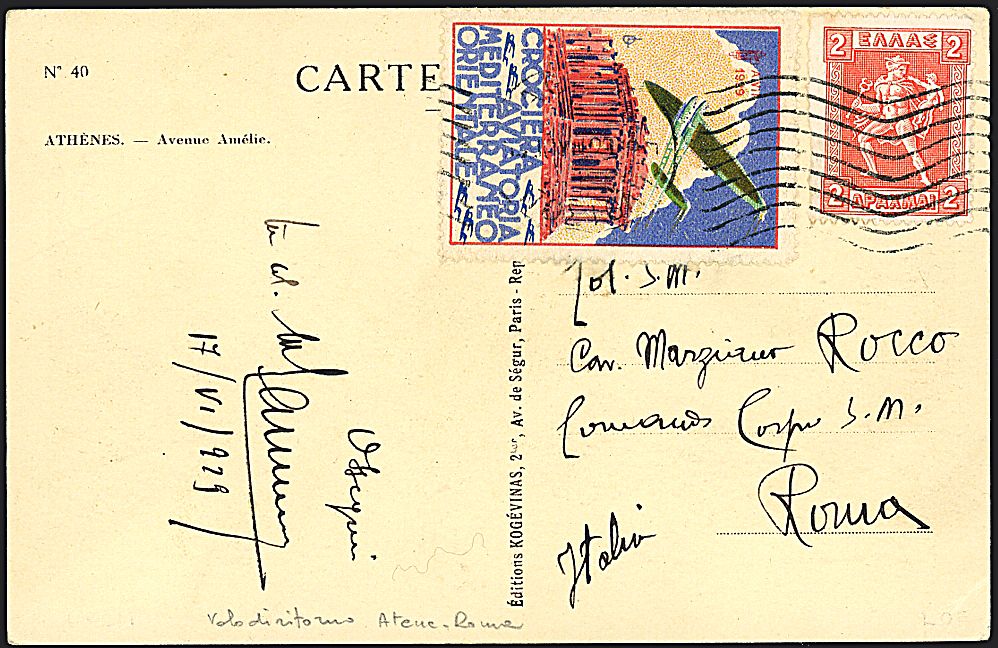 N° 40
CARTE
ATHÈNES. — Avenue Amélie.
CROCIERA
AVIATORIA
MEDITERRANEO
ORIENTALE
1929
2 ΕΛΛΑΣ 2
2 ΔΡΑΧΜΑΙ 2
Éditions KOGÉVINAS, 2ter, Av. de Ségur, Paris - Rep
S.M.
Cav. ROCCO
Comando Corpo S.M.
Roma
Italia
Ossequi
17/VI/929
Volo di ritorno Atene-Roma